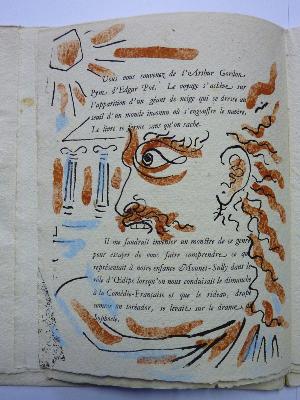 Vous vous souvenez de l'Arthur Gordon
Pym d'Edgar Poë. Le voyage s'achève sur
l'apparition d'un géant de neige qui se dresse au
seuil d'un monde inconnu où s'engouffre le navire.
Le livre se ferme sans qu'on sache.
Il me faudrait inventer un monstre de ce genre
pour essayer de vous faire comprendre ce que
représentait à notre enfance Mounet-Sully dans le
rôle d'Œdipe lorsqu'on nous conduisait le dimanche
à la Comédie-Française et que le rideau, drapé
comme un toréador, se levait sur le drame de
Sophocle.